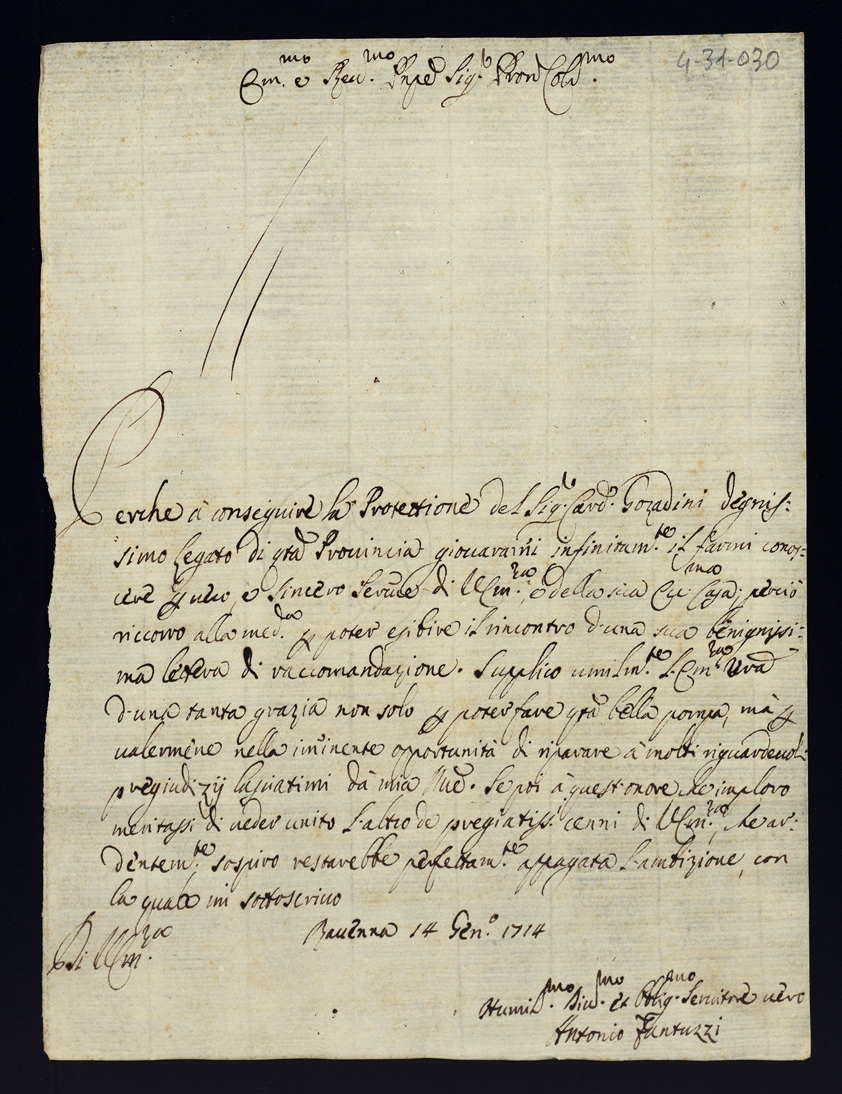 4-31-030
Em.mo e Reu.mo Pnpe Sig.r Pron Col.mo
Perche à conseguire la Protettione del Sig.r Card. Gozadini degnis:
simo Legato di qta Prouincia giouarami infinitam.te il farmi conos:
cere p uero, e sincero Seruĩe di VEm.za, e della sua Ecc.ma Casa; perciò
riccorro alla med.ma p poter esibire il rincontro d'una sua benignissi:
ma lettera di raccomandazione. Supplico umilm.te l'Em.za Vra
d'una tanta grazia non solo p poter fare qta bella pompa, mà p
ualermene nella iminente opportunità di riparare à molti riguardeuoli
pregiudizij lasciatimi da mia Mre. Se poi à quest'onore che imploro
meritassi di ueder unito l'altro de pregiatiss.i cenni di VEm.za, che ar:
dentem.te sospiro restarebbe perfettam.te appagata l'ambizione, con
la quale mi sottoscriuo
Di VEm.za
Rauenna 14 Gen.o 1714
Humil.mo Diu.mo et Oblig.mo Seruitore uero
Antonio Fantuzzi